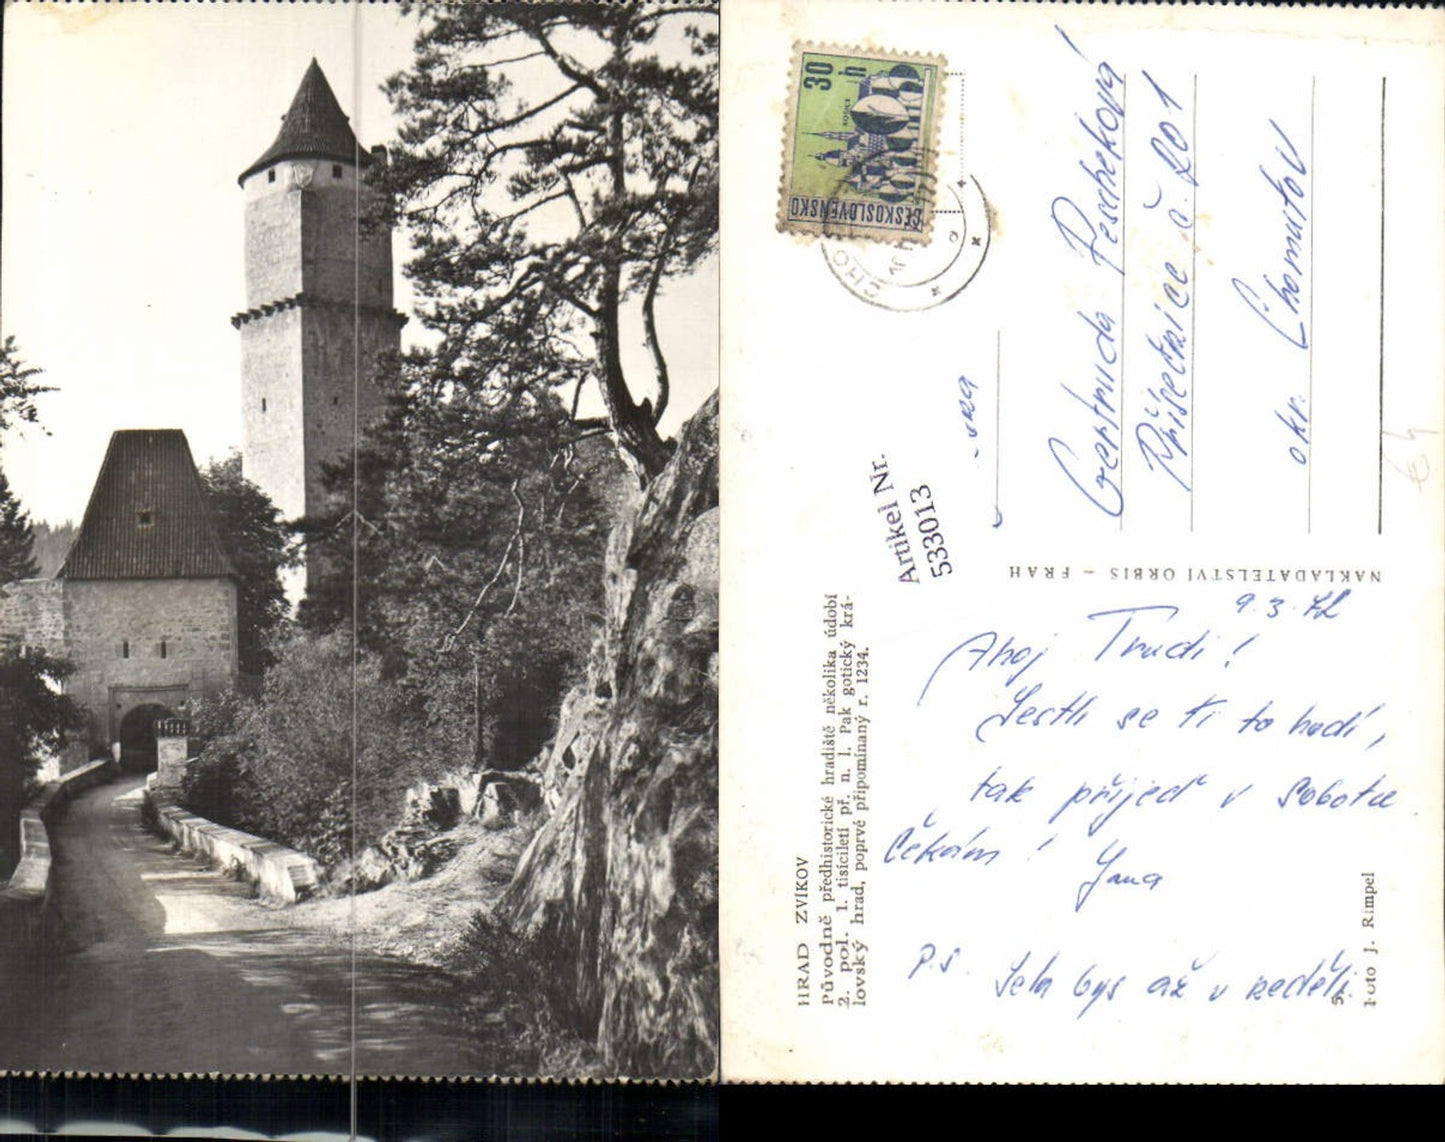 30
h
KOŠICE
ČESKOSLOVENSKO
CHO
Gertruda Pescheková
Příšečnice č. 201
okr. Chomutov
Artikel Nr.
533013
NAKLADATELSTVÍ ORBIS - PRAH
HRAD ZVÍKOV
Původně předhistorické hradiště několika údobí
2. pol. 1. tisíciletí př. n. l. Pak gotický krá-
lovský hrad, poprvé připomínaný r. 1234.
9.3.72
Ahoj Trudi!
Jestli se ti to hodí,
tak přijeď v sobotu
Čekám!
Jana
P.S. Jela bys až v neděli.
Foto J. Rimpel